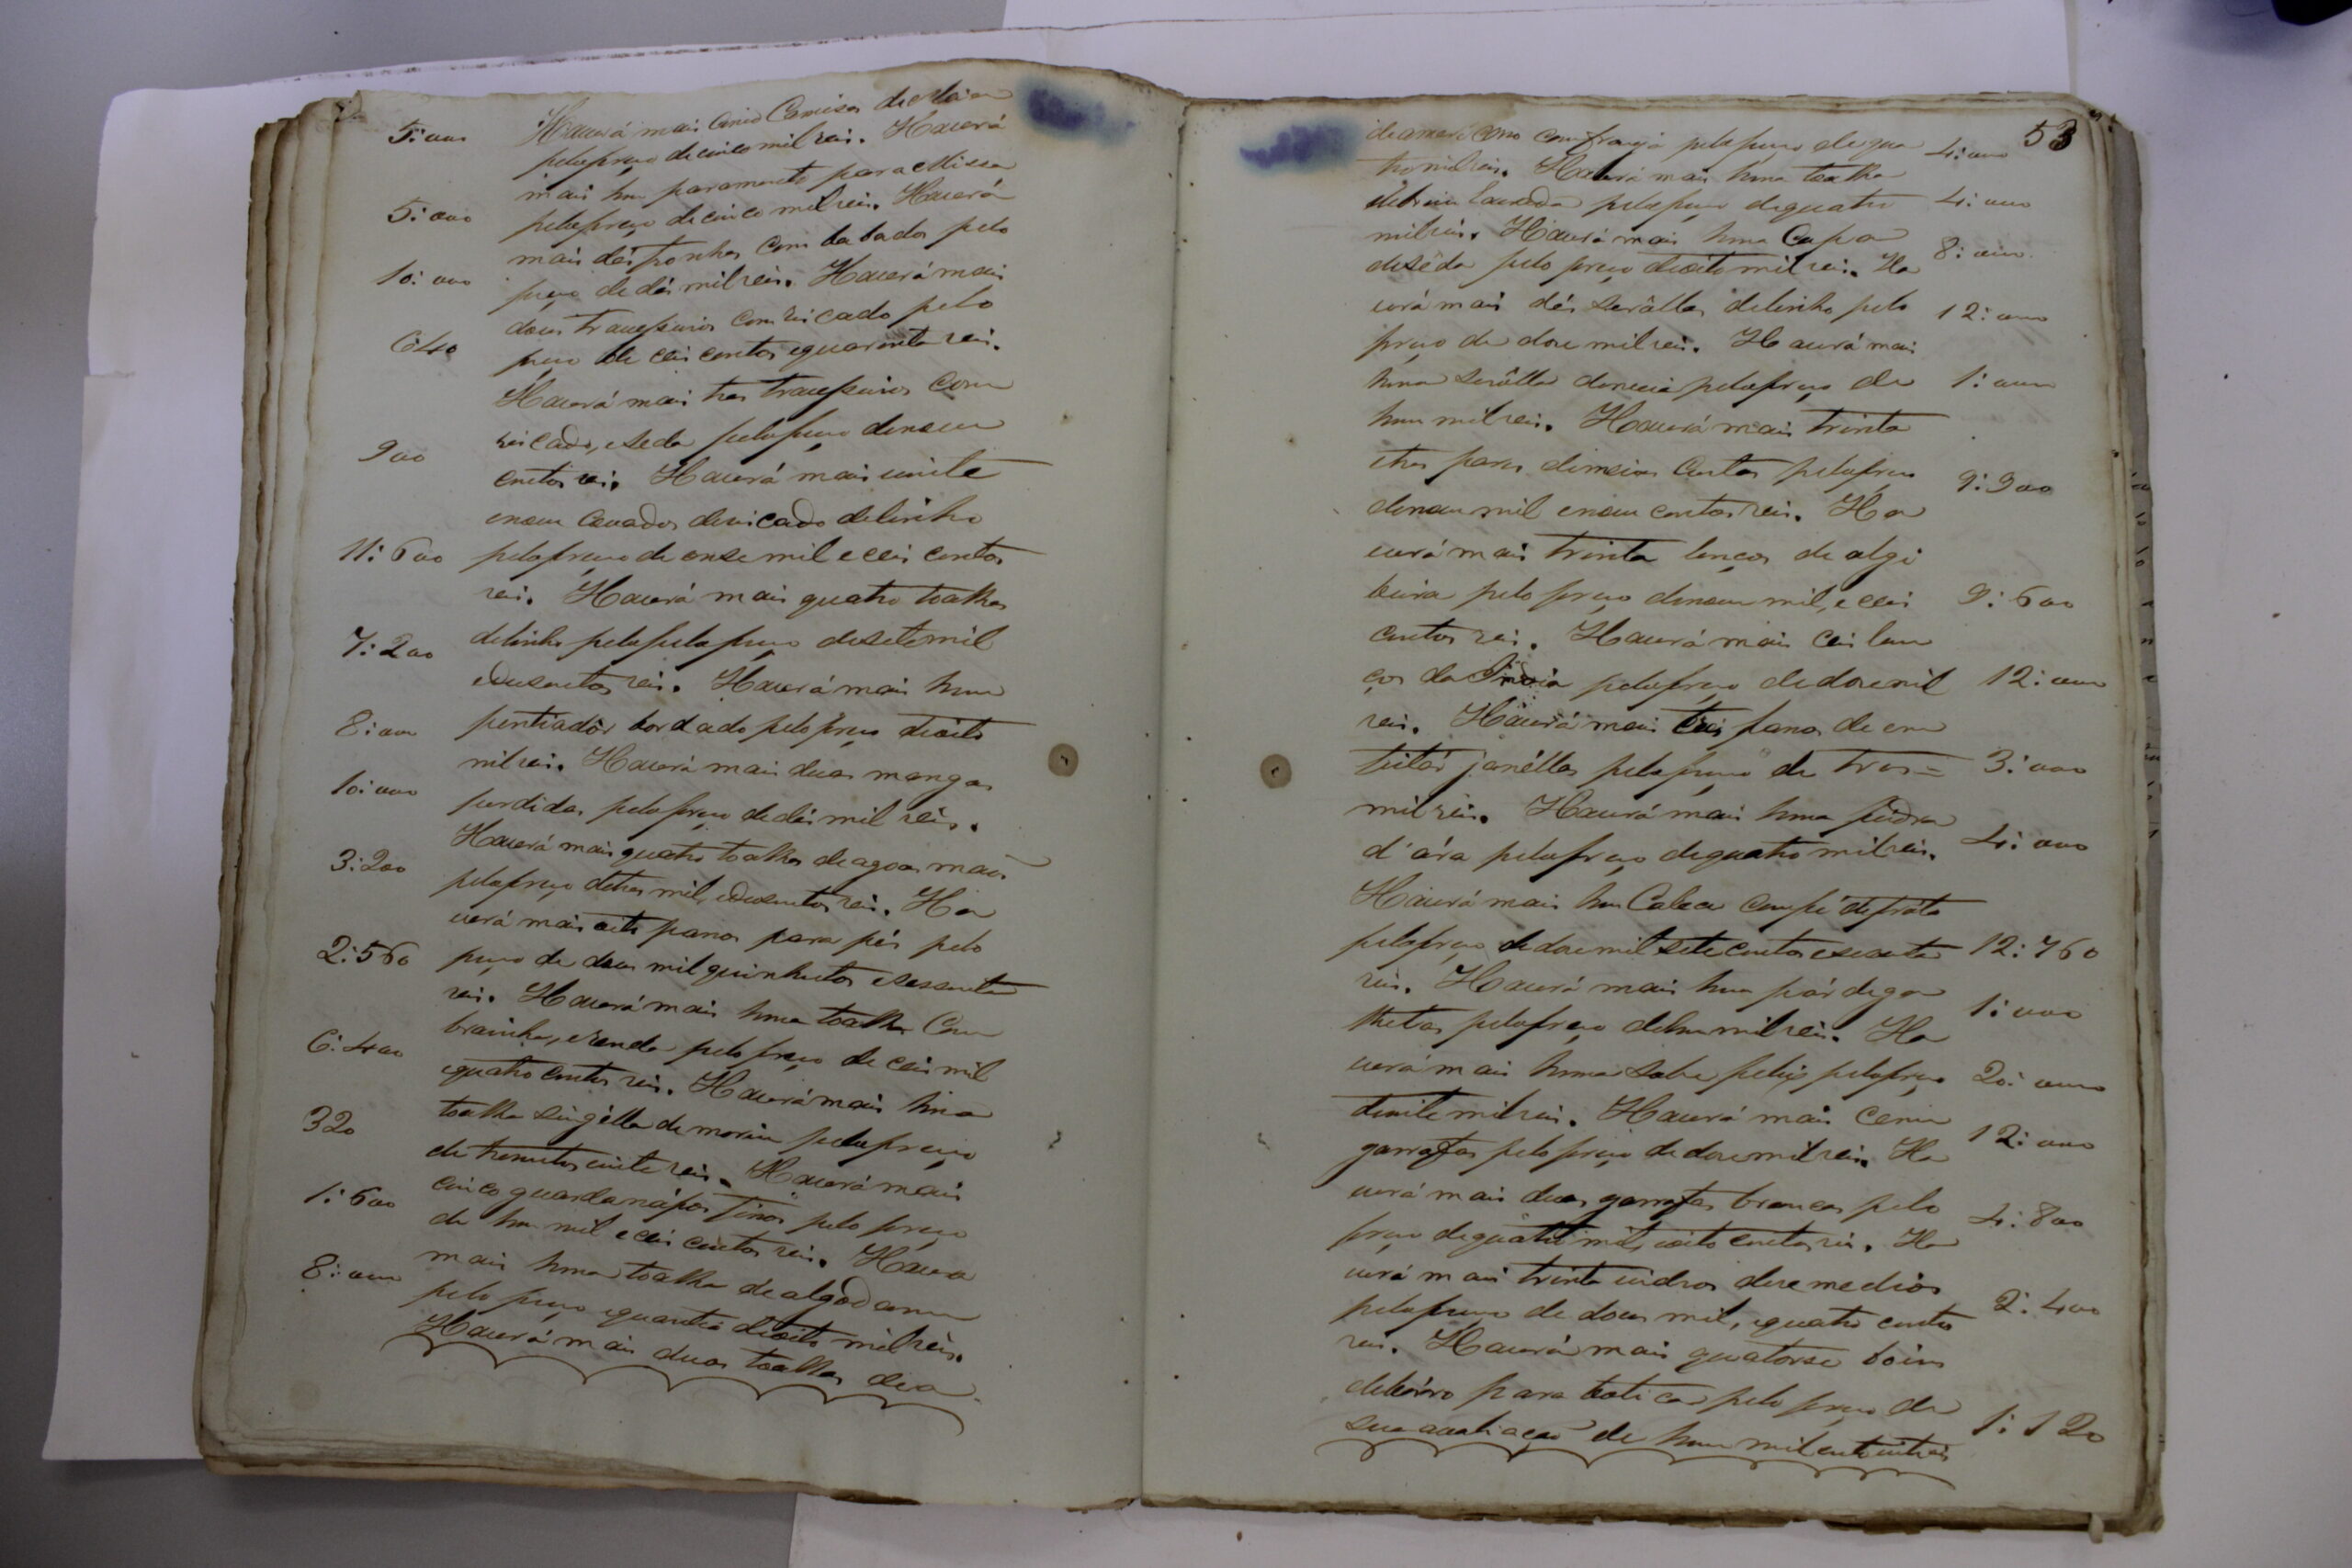 Haverá mais cinco Camisas de
5: 000 pelo preço de cinco mil reis. Haverá
mais hum paramento para Missa
5: 000 pelo preço de cinco mil reis. Haverá
mais dés fronhas com babados pelo
10: 000 preço de dés mil reis. Haverá mais
dous travesseiros com riscado pelo
640 preço de ceis centos e quarenta reis.
Haverá mais tres travesseiros com
riscado, e seda pelo preço de nove
900 centos reis. Haverá mais vinte
e nove Covados de riscado de linho
11: 600 pelo preço de onze mil e ceis centos
reis. Haverá mais quatro toalhas
7: 200 de linho pelo pelo preço de sete mil
e dusentos reis. Haverá mais hum
8: 000 pentiadôr bordado pelo preço de oito
mil reis. Haverá mais duas mangas
10: 000 perdidas pelo preço de dés mil reis.
Haverá mais quatro toalhas de agoas maos
3: 200 pelo preço de tres mil, e dusentos reis. Ha
verá mais oito panos para pés pelo
2: 560 preço de dous mil quinhentos e sessenta
reis. Haverá mais huma toalha Com
brainha, e renda pelo preço de ceis mil
6: 400 e quatro centos reis. Haverá mais huma
toalha singélla de morim pelo preço
320 de trezentos e vinte reis. Haverá mais
cinco guardanápos finos pelo preço
1: 600 de hum mil e ceis centos reis. Havera
mais huma toalha de algodam
8: 000 pelo preço e quantia de oito mil reis.
Haverá mais duas toalhas de a
53
de americano com franja pelo preço de qua 4: 000
tro mil reis. Haverá mais huma toalha
de brim lavrada pelo preço de quatro 4: 000
mil reis. Haverá mais huma Capa
de sêda pelo preço de oito mil reis. Ha 8: 000
verá mais dés serôllas de linho pelo
preço de dose mil reis. Haverá mais 12: 000
huma serôlla de meia pelo preço de 1: 000
hum mil reis. Haverá mais trinta
e tres pares de meias Curtas pelo preço
de nove mil e nove centos reis. Ha 9: 900
verá mais trinta lenços de algi
beira pelo preço de nove mil, e ceis 9: 600
centos reis. Haverá mais ceis len
ços da India pelo preço de dose mil 12: 000
reis. Haverá mais panos de en
feitár janéllas pelo preço de tres = 3: 000
mil reis. Haverá mais huma pedra
d'ára pelo preço de quatro mil reis. 4: 000
Haverá mais hum Calex com pé de prata
pelo preço de dose mil sete centos e sesenta 12: 760
reis. Haverá mais hum pár de ga
lhetas pelo preço de hum mil reis. Ha 1: 000
verá mais huma sobre pelis pelo preço 20: 000
de vinte mil reis. Haverá mais cem
garrafas pelo preço de dose mil reis. Ha 12: 000
verá mais duas garrafas brancas pelo
preço de quatro mil, e oito centos reis. Ha 4: 800
verá mais trinta vidros de remedios
pelo preço de dous mil, e quatro centos 2: 400
reis. Haverá mais quatorse boiens
de bárro para botica pelo preço de
sua avaliação de hum mil cento e vinte reis 1: 120